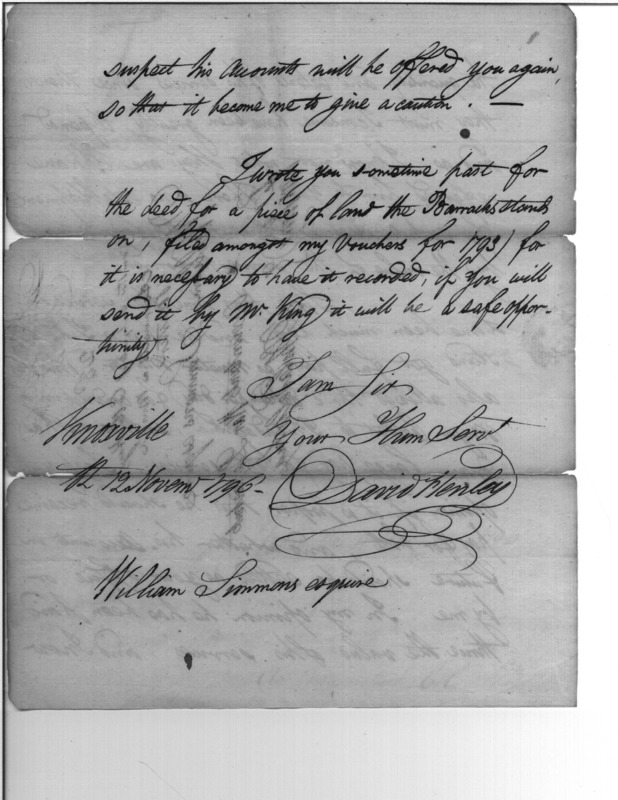 suspect his accounts will be offered you again,
so that it become me to give a caution. —
I wrote you sometime past for
the deed for a piese of land the Barracks stands
on, (filed amongst my Vouchers for 1793) for
it is necessary to have it recorded, if you will
send it by Mr. King it will be a safe oppor-
tunity
I am Sir
Knoxville Your Hum Servt
th 12 Novemr 1796- David Henley
William Simmons esquire